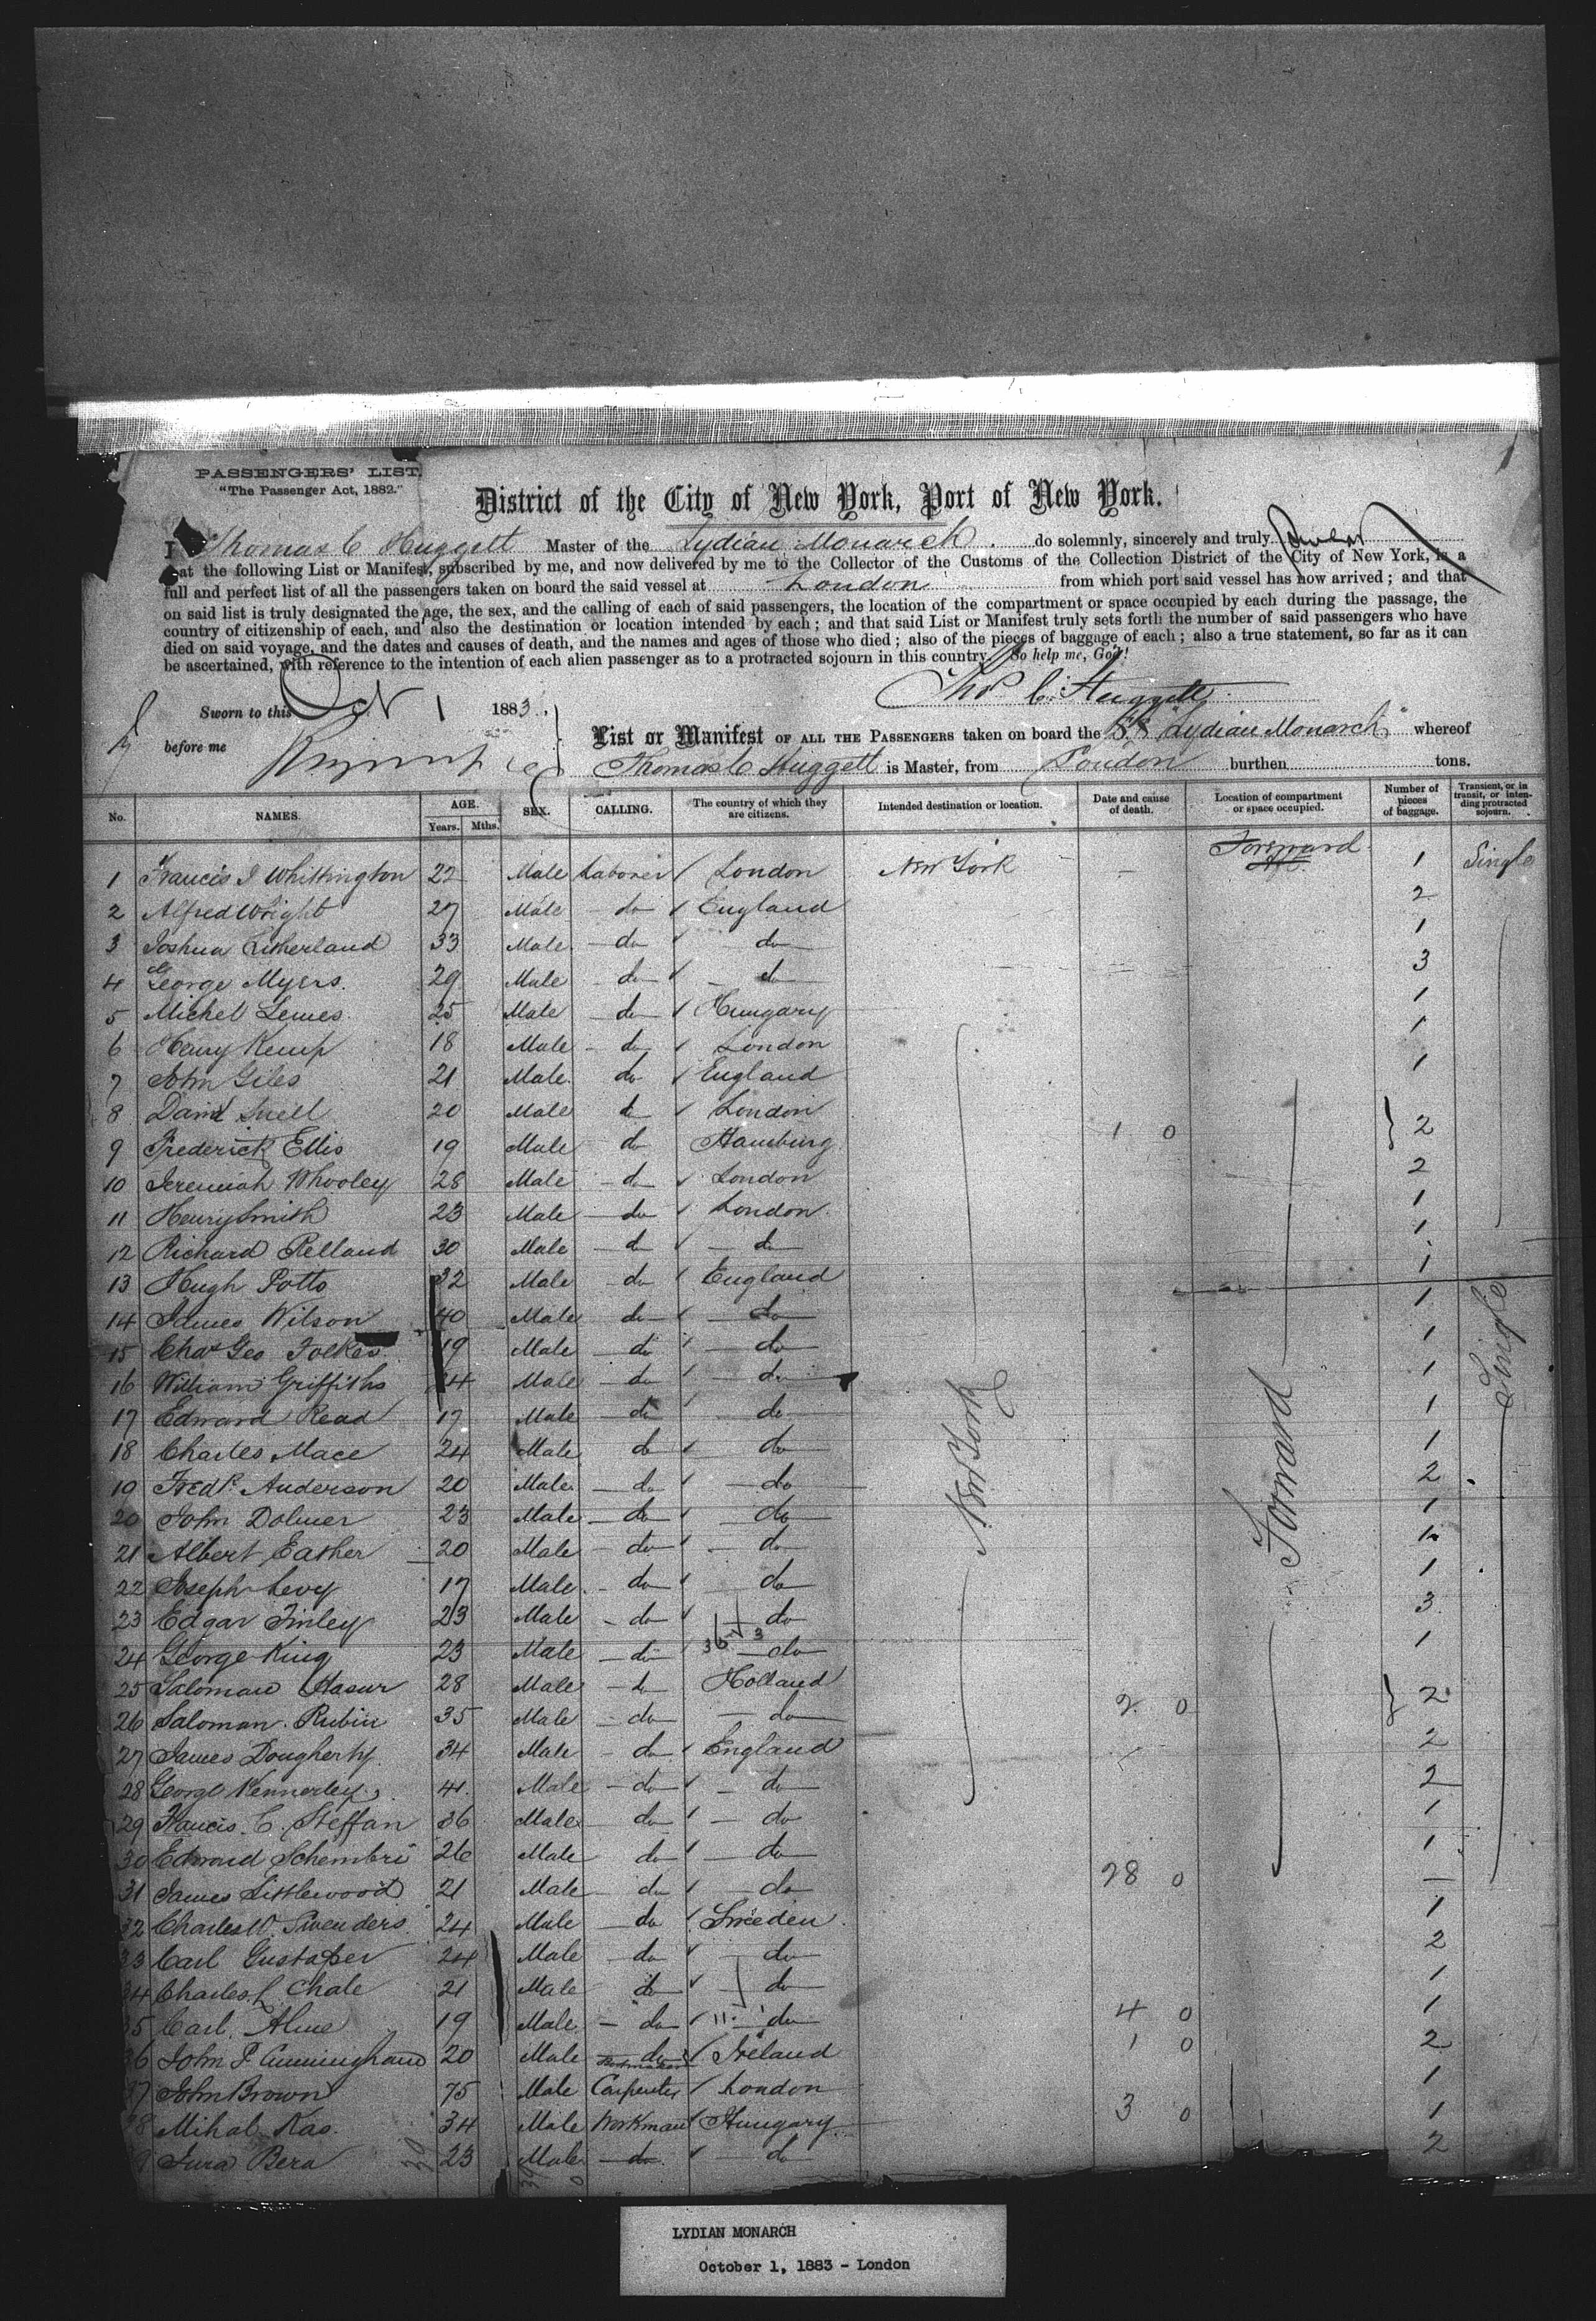 PASSENGERS' LIST.
"The Passenger Act, 1882."
District of the City of New York, Port of New York.
I Thomas C Huggett Master of the Lydian Monarch do solemnly, sincerely and truly
that the following List or Manifest, subscribed by me, and now delivered by me to the Collector of the Customs of the Collection District of the City of New York, is a
full and perfect list of all the passengers taken on board the said vessel at London from which port said vessel has now arrived; and that
on said list is truly designated the age, the sex, and the calling of each of said passengers, the location of the compartment or space occupied by each during the passage, the
country of citizenship of each, and also the destination or location intended by each; and that said List or Manifest truly sets forth the number of said passengers who have
died on said voyage, and the dates and causes of death, and the names and ages of those who died; also of the pieces of baggage of each; also a true statement, so far as it can
be ascertained, with reference to the intention of each alien passenger as to a protracted sojourn in this country. So help me, God!
Thos C. Huggett
Sworn to this Oct 1 1883.
before me
List or Manifest OF ALL THE PASSENGERS taken on board the S.S "Lydian Monarch" whereof
Thomas C Huggett is Master, from London burthen tons.
No. NAMES. AGE. Years. Mths. SEX. CALLING. The country of which they are citizens. Intended destination or location. Date and cause of death. Location of compartment or space occupied. Number of pieces of baggage. Transient, or in transit, or intending protracted sojourn.
Forward
1 Francis J Whittington 22 Male Laborer London New York — Aft 1 Single
2 Alfred Wright 27 Male do England 2
3 Joshua Litherland 33 Male do do 1
4 George Myers. 29 Male do do 3
5 Michel Lemes. 25 Male do Hungary 1
6 Harry Kemp 18 Male do London 1
7 John Giles 21 Male do England 1
8 David Snell 20 Male do London
9 Frederick Ellis 19 Male do Hamburg 1 0 2
10 Jeremiah Whooley 28 Male do London 2
11 Henry Smith 23 Male do London. 1
12 Richard Pelland 30 Male do do 1
13 Hugh Potts 32 Male do England 1
14 James Wilson 40 Male do do 1
15 Chas Geo Folkes 19 Male do do 1
16 William Griffiths 24 Male do do 1
17 Edward Read 17 Male do do 1
18 Charles Mace 24 Male do do 1
19 Fredk Anderson 20 Male do do 2
20 John Dolmer 23 Male do do 1
21 Albert Easher 20 Male do do 1
22 Joseph Levy 17 Male do do 1
23 Edgar Finley 23 Male do do 3
24 George King 23 Male do 36 3 do 1
25 Saloman Hasur 28 Male do Holland
26 Saloman Rubin 35 Male do do 2 0 2
27 James Dougherty 34 Male do England 2
28 George Kennerley 41 Male do do 2
29 Francis. C. Steffan 36 Male do do 1
30 Edward Schembri 26 Male do do 1
31 James Littlewood 21 Male do do 28 0 —
32 Charles W. Swenders 24 Male do Sweden 1
33 Carl Gustafser 24 Male do do 2
34 Charles L Chale 21 Male do do 1
35 Carl Alme 19 Male do 11 do 4 0 1
36 John P Cunningham 20 Male do Ireland 1 0 2
37 John Brown 75 Male Carpenter London 1
38 Mihal Kas. 34 Male Workman Hungary 3 0 1
9 Jura Bera 23 Male do do 2
New York
Forward
Single
LYDIAN MONARCH
October 1, 1883 - London